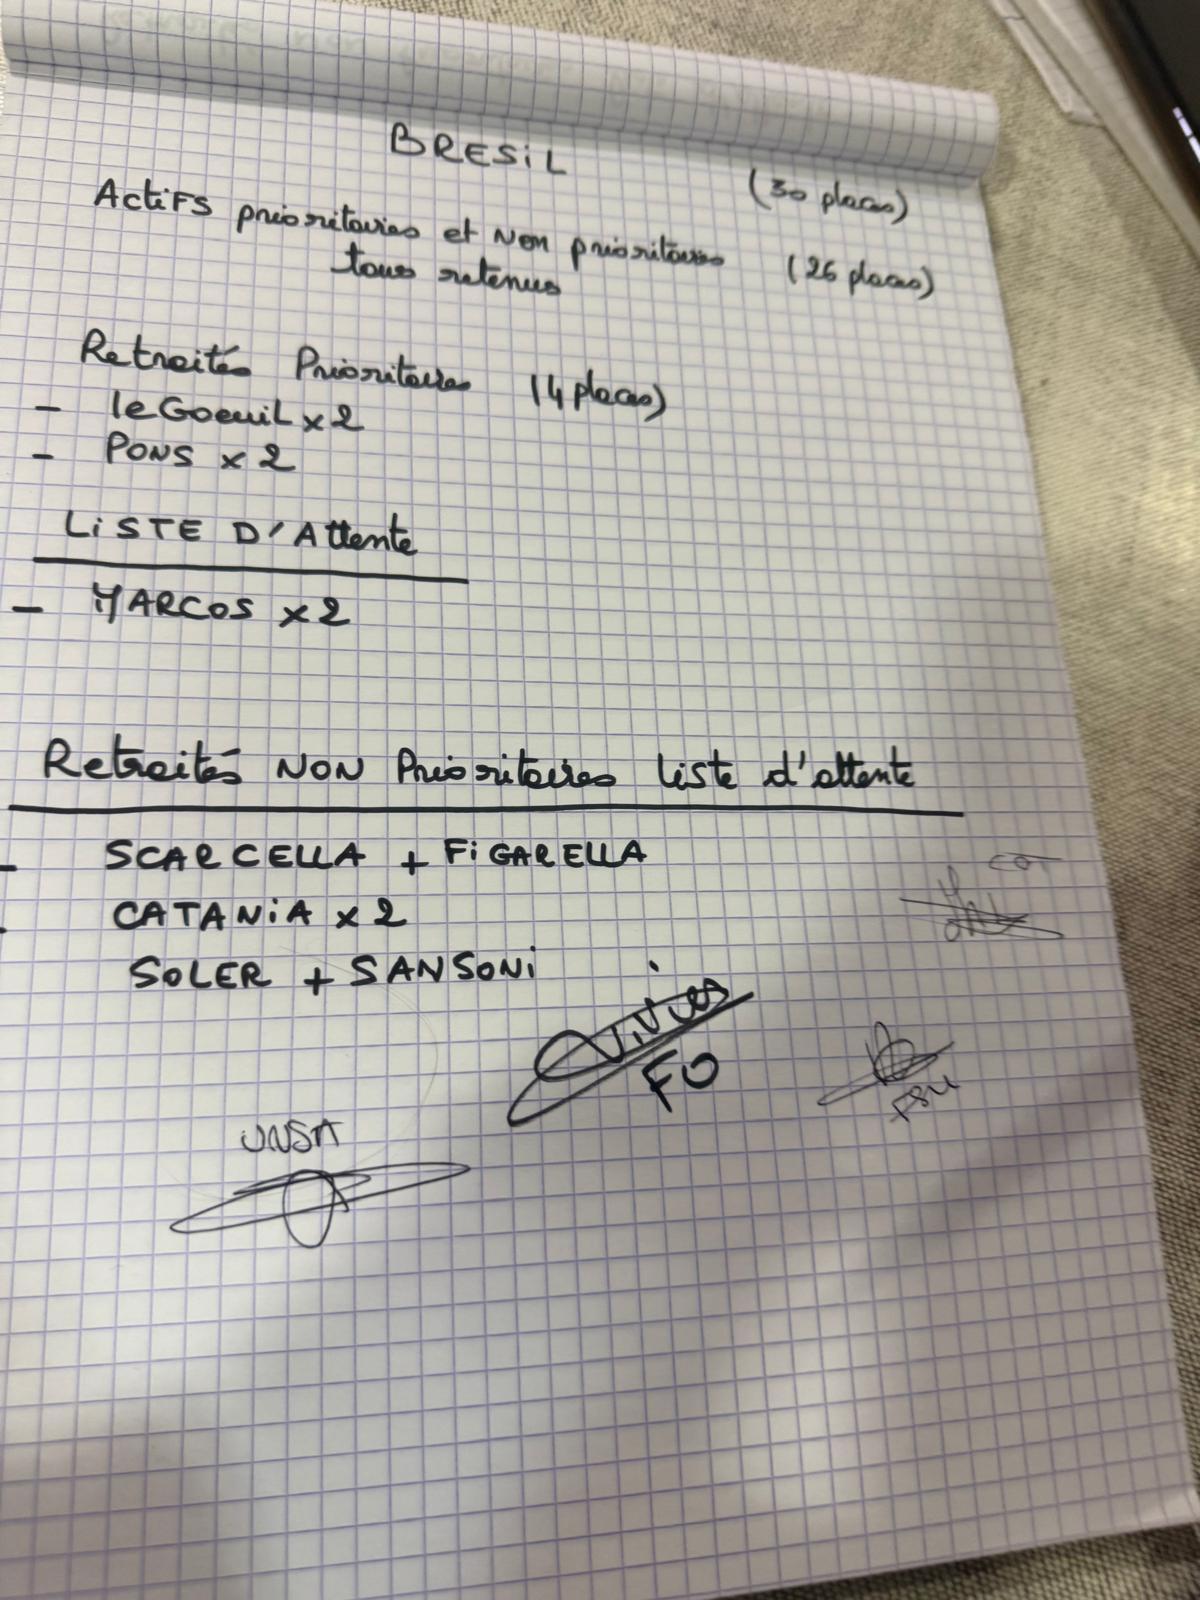 BRESiL
(30 places)
ActiFS prioritaires et Non prioritaires (26 places)
tous retenus
Retraités Prioritaires (4 places)
- leGoeuiL x 2
- PONS x 2
LiSTE D'Attente
- MARCOS x 2
Retraités NON Prioritaires liste d'attente
- SCARCELLA + FiGARELLA
- CATANiA x 2
SOLER + SANSONi
FO
FSU
UNSA